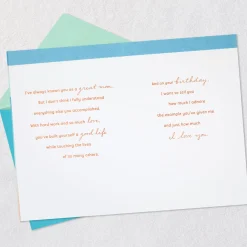 I've always known you as a great man.
But I don't think I fully understood
everything else you accomplished.
How hard work and so much love
you've built yourself a good life
while touching the lives
of so many others.
And on your birthday,
I want to tell you
how much I admire
the example you've given me
and just how much
I love you.